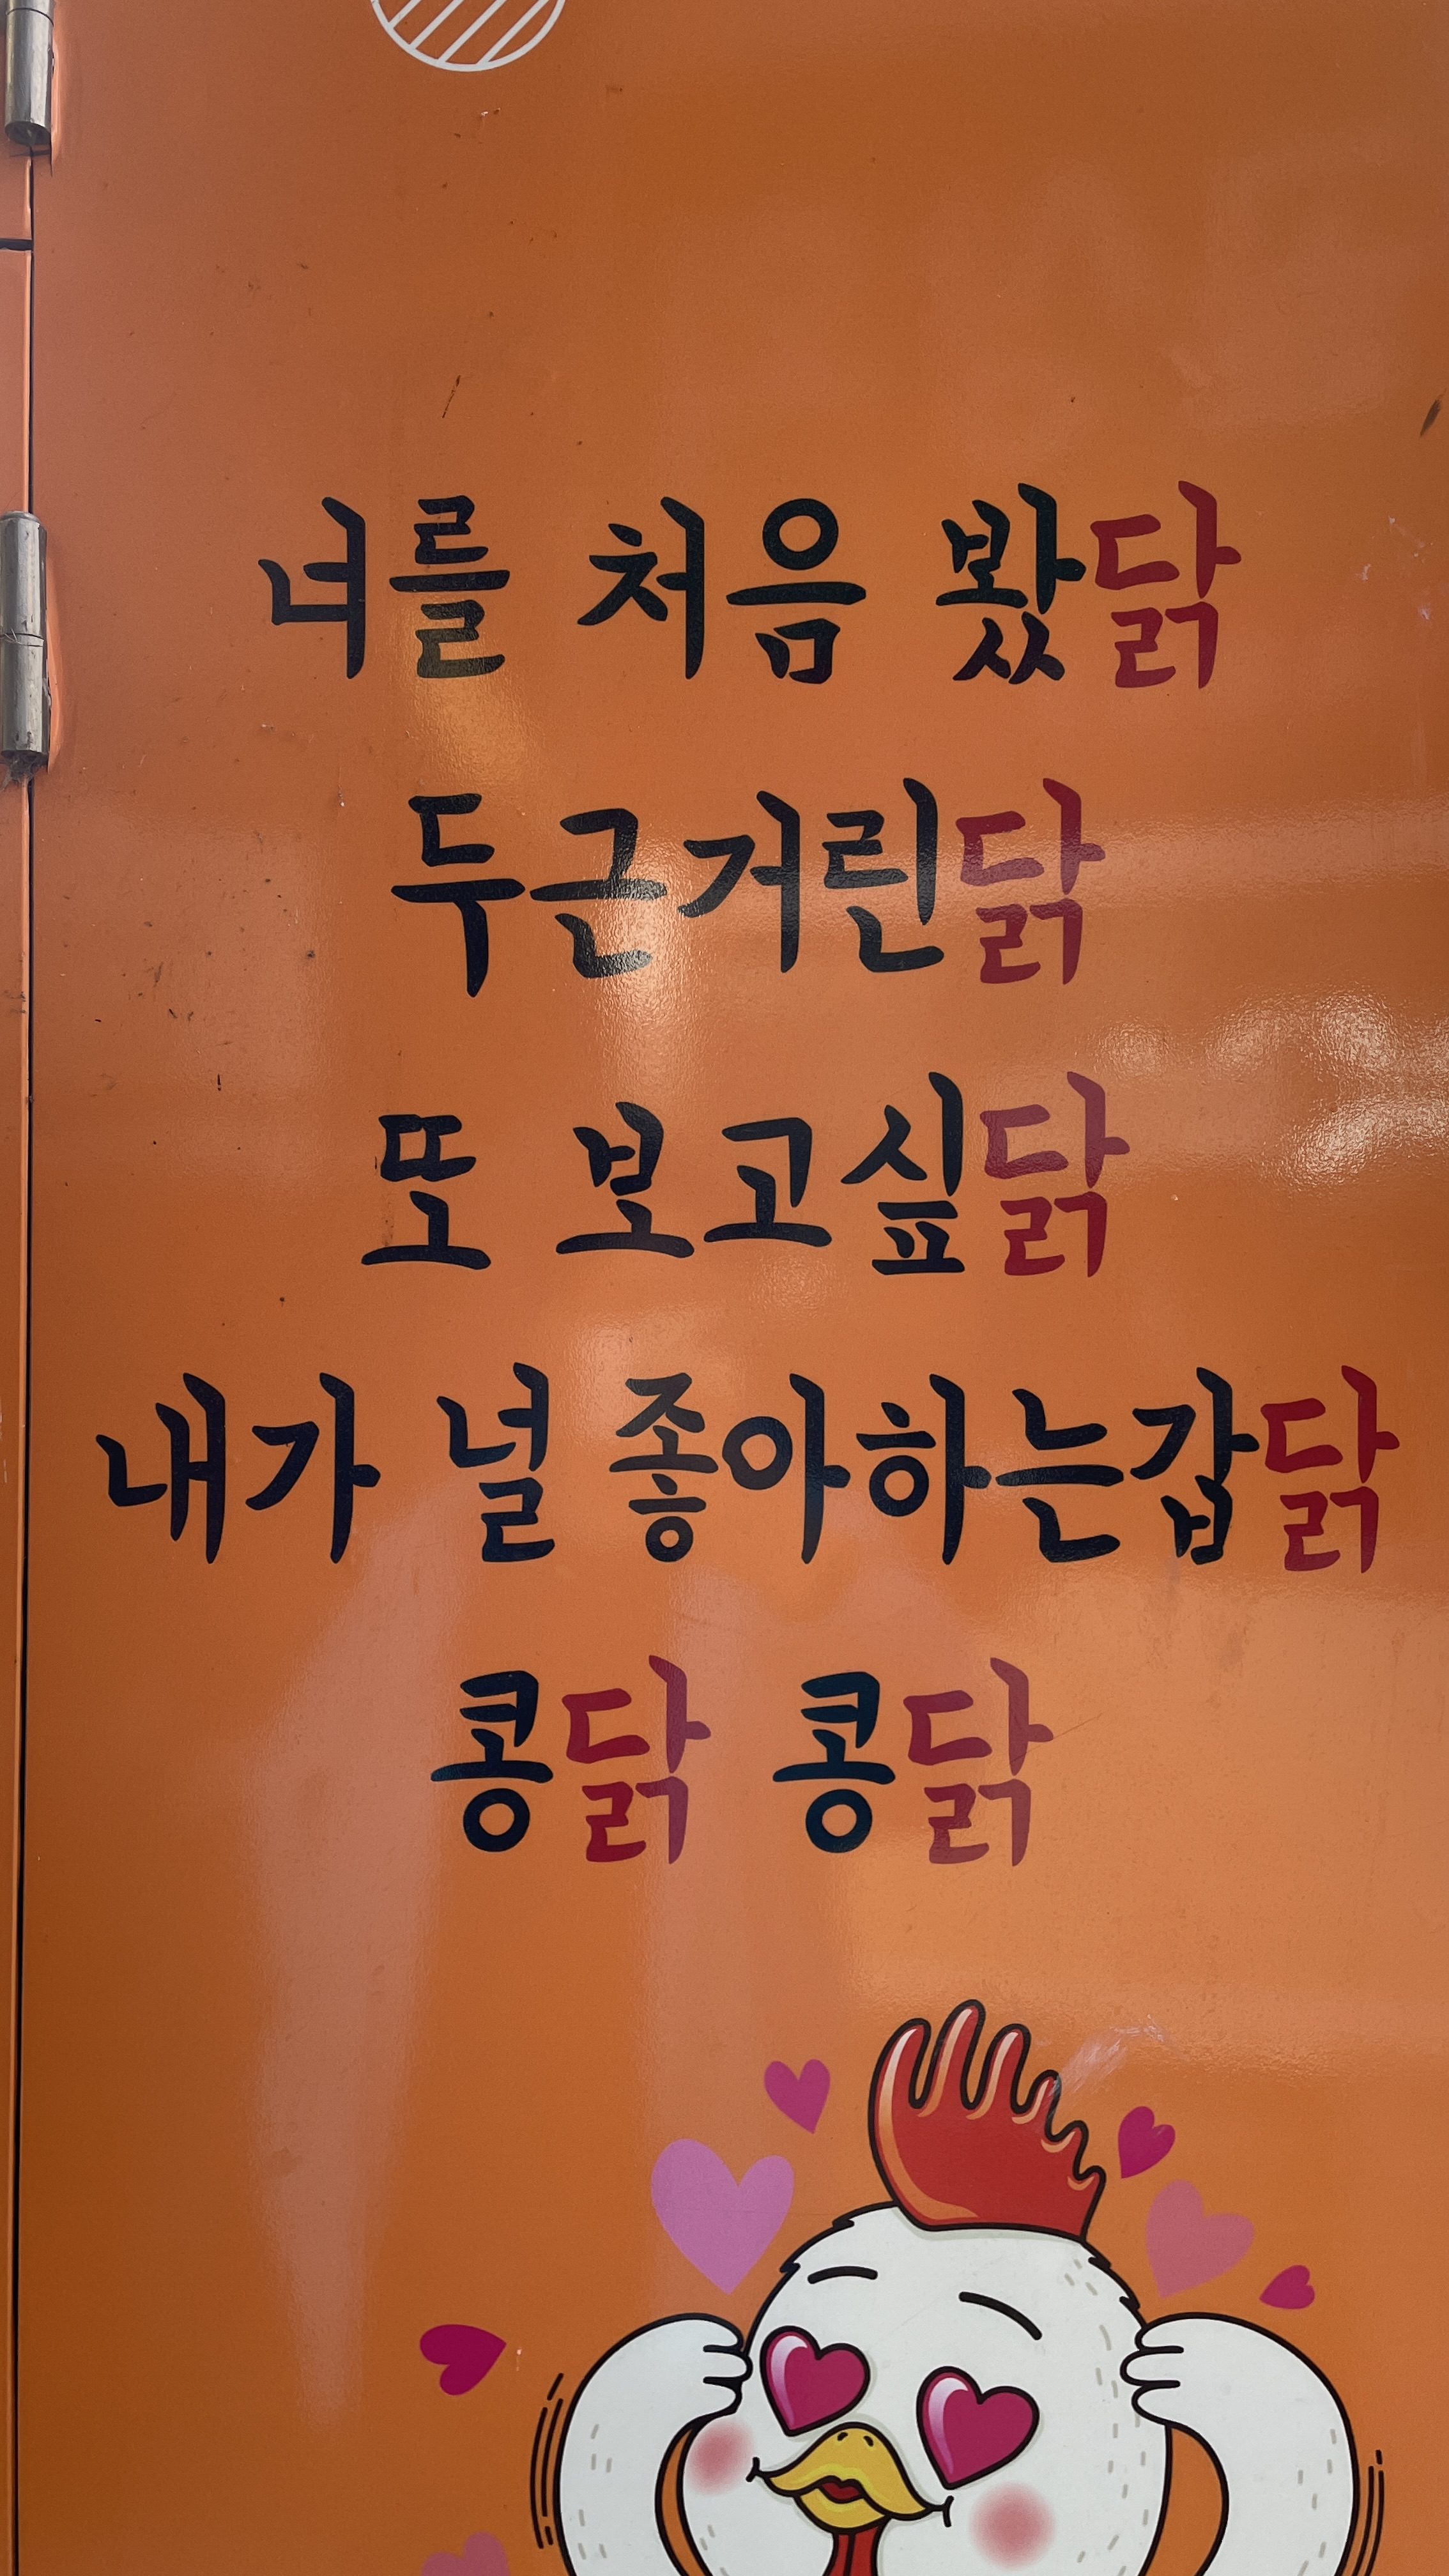 너를 처음 봤닭
두근거린닭
또 보고싶닭
내가 널 좋아하는갑닭
콩닭 콩닭